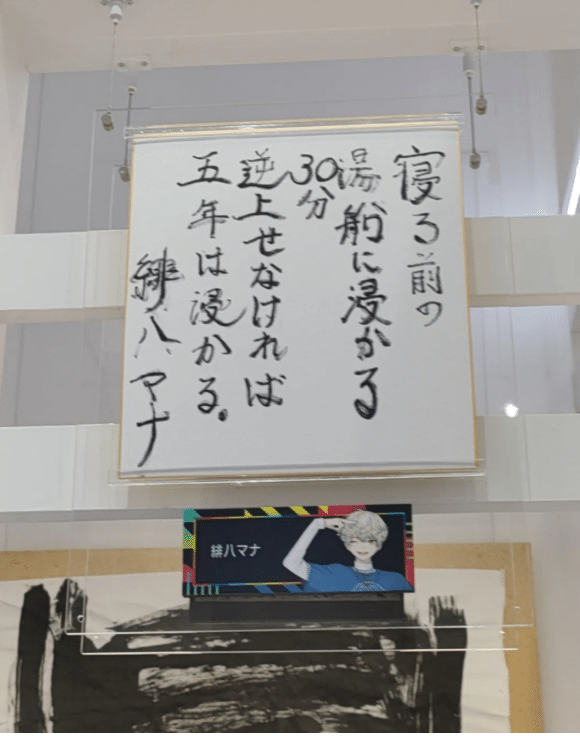 寝る前の
湯船に浸かる
30分
逆上せなければ
五年は浸かる。
緋八マナ
緋八マナ